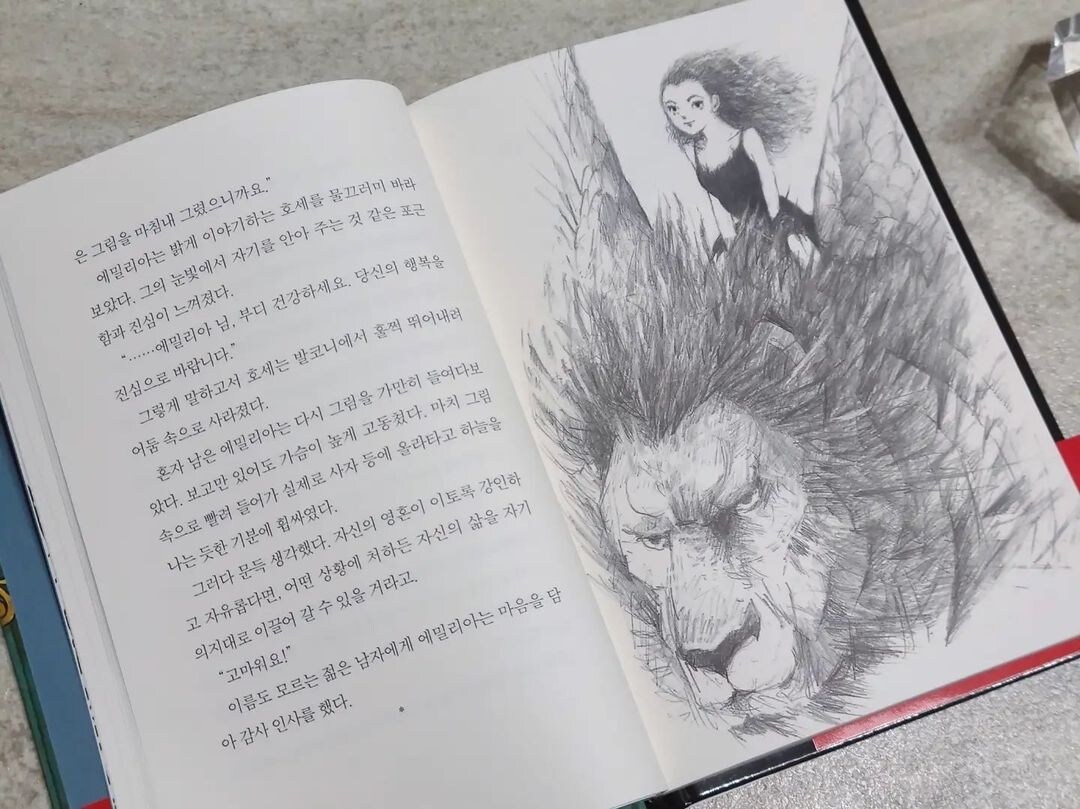 은 그림을 마침내 그렸으니까요.”
에밀리아는 밝게 이야기하는 호세를 물끄러미 바라
보았다. 그의 눈빛에서 자기를 안아 주는 것 같은 포근
함과 진심이 느껴졌다.
“……에밀리아 님, 부디 건강하세요. 당신의 행복을
진심으로 바랍니다.”
그렇게 말하고서 호세는 발코니에서 훌쩍 뛰어내려
어둠 속으로 사라졌다.
혼자 남은 에밀리아는 다시 그림을 가만히 들여다보
았다. 보고만 있어도 가슴이 높게 고동쳤다. 마치 그림
속으로 빨려 들어가 실제로 사자 등에 올라타고 하늘을
나는 듯한 기분에 휩싸였다.
그러다 문득 생각했다. 자신의 영혼이 이토록 강인하
고 자유롭다면, 어떤 상황에 처하든 자신의 삶을 자기
의지대로 이끌어 갈 수 있을 거라고.
“고마워요!”
이름도 모르는 젊은 남자에게 에밀리아는 마음을 담
아 감사 인사를 했다.